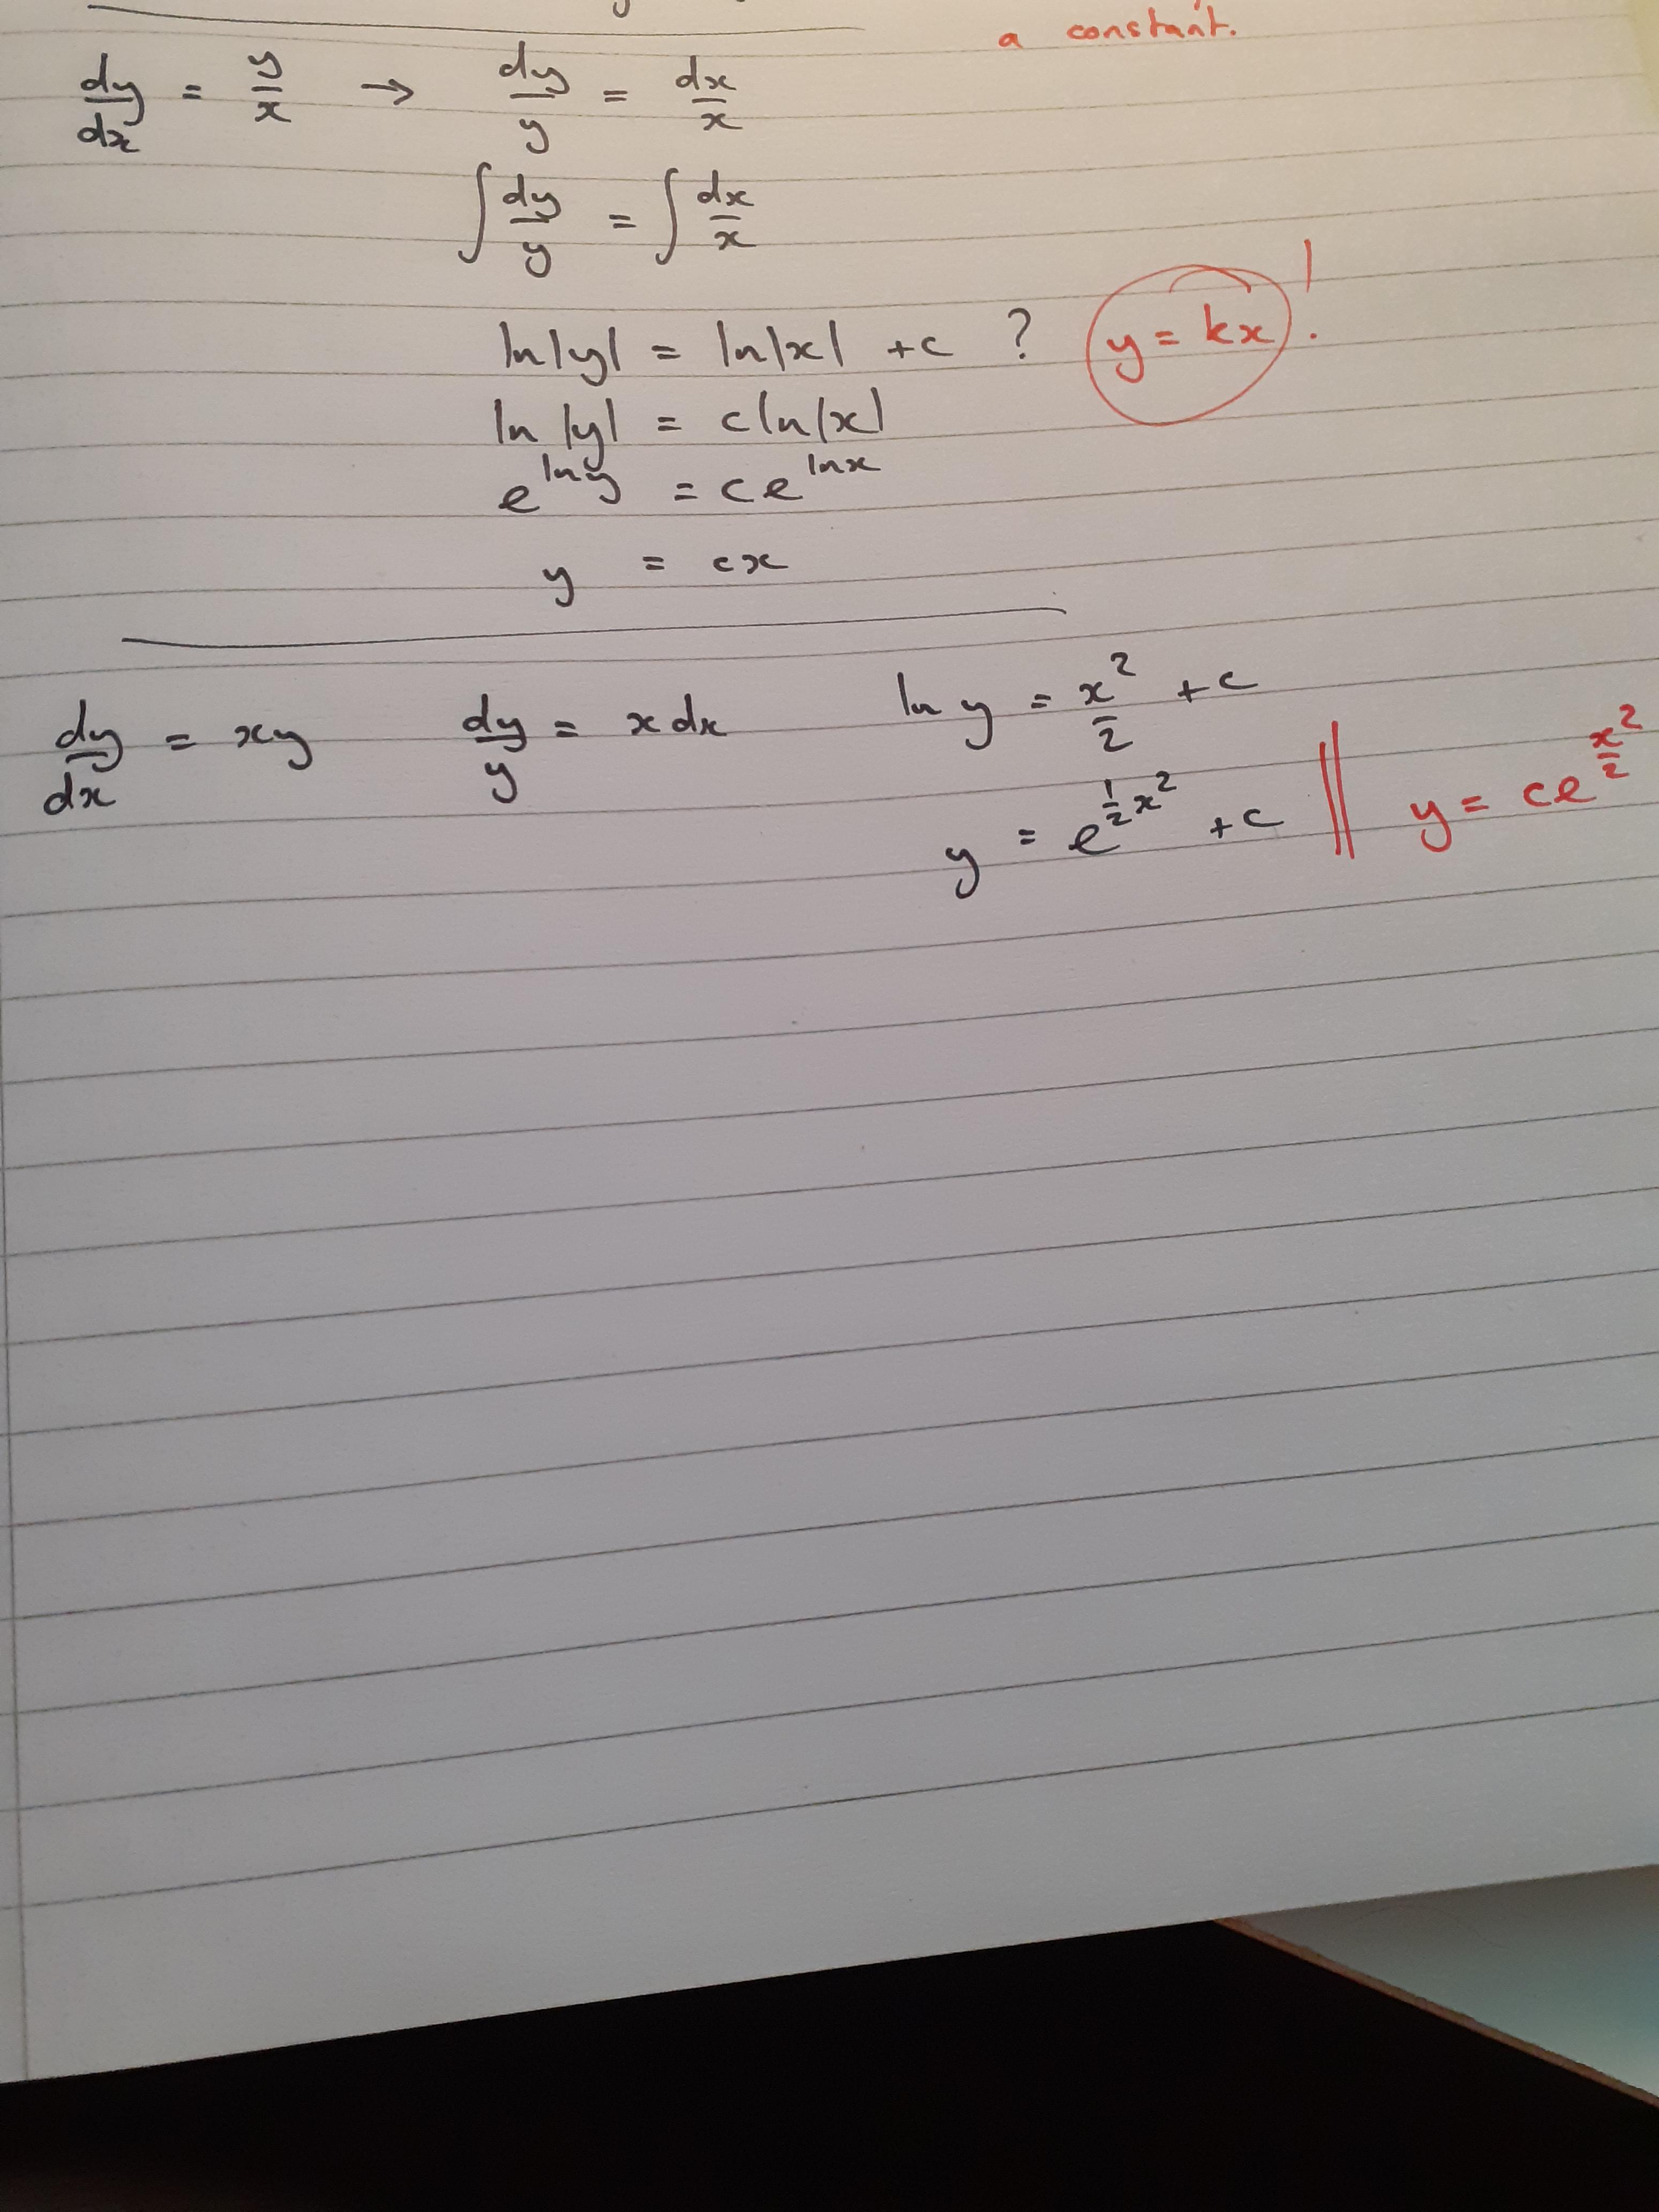 a constant.
dy/dx = y/x → dy/y = dx/x
∫ dy/y = ∫ dx/x
ln|y| = ln|x| + c ? y = kx !
ln |y| = c ln|x|
e^lny = ce^lnx
y = cx
dy/dx = xy dy/y = x dx ln y = x²/2 + c
y = e^½x² + c || y = ce^x²/2